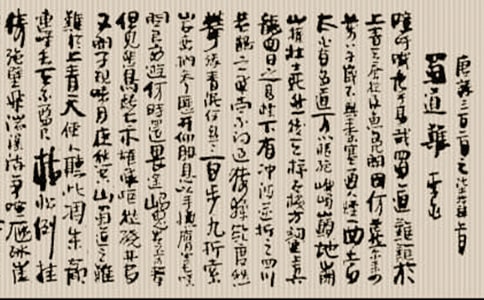 唐詩三百首之
蜀道難 李白
噫吁嚱危乎高哉蜀道之難難於
上青天蠶叢及魚鳧開國何茫然爾來
八千歲不與秦塞通人煙西當
太白有鳥道可以橫絕峨嵋巔地崩
山摧壯士死然後天梯石棧方鉤連上有
六龍回日之高標下有衝波逆折之回川
黃鶴之飛尚不得過猿猱欲度愁
攀緣青泥何盤盤百步九折縈
巖巒捫參歷井仰脅息以手撫膺坐長嘆
問君西遊何時還畏途巉巖不可攀
但見悲鳥號古木雄飛雌從繞林間
又聞子規啼夜月愁空山蜀道之難
難於上青天使人聽此凋朱顏
連峰去天不盈尺枯松倒挂
倚絕壁飛湍瀑流爭喧豗砯崖